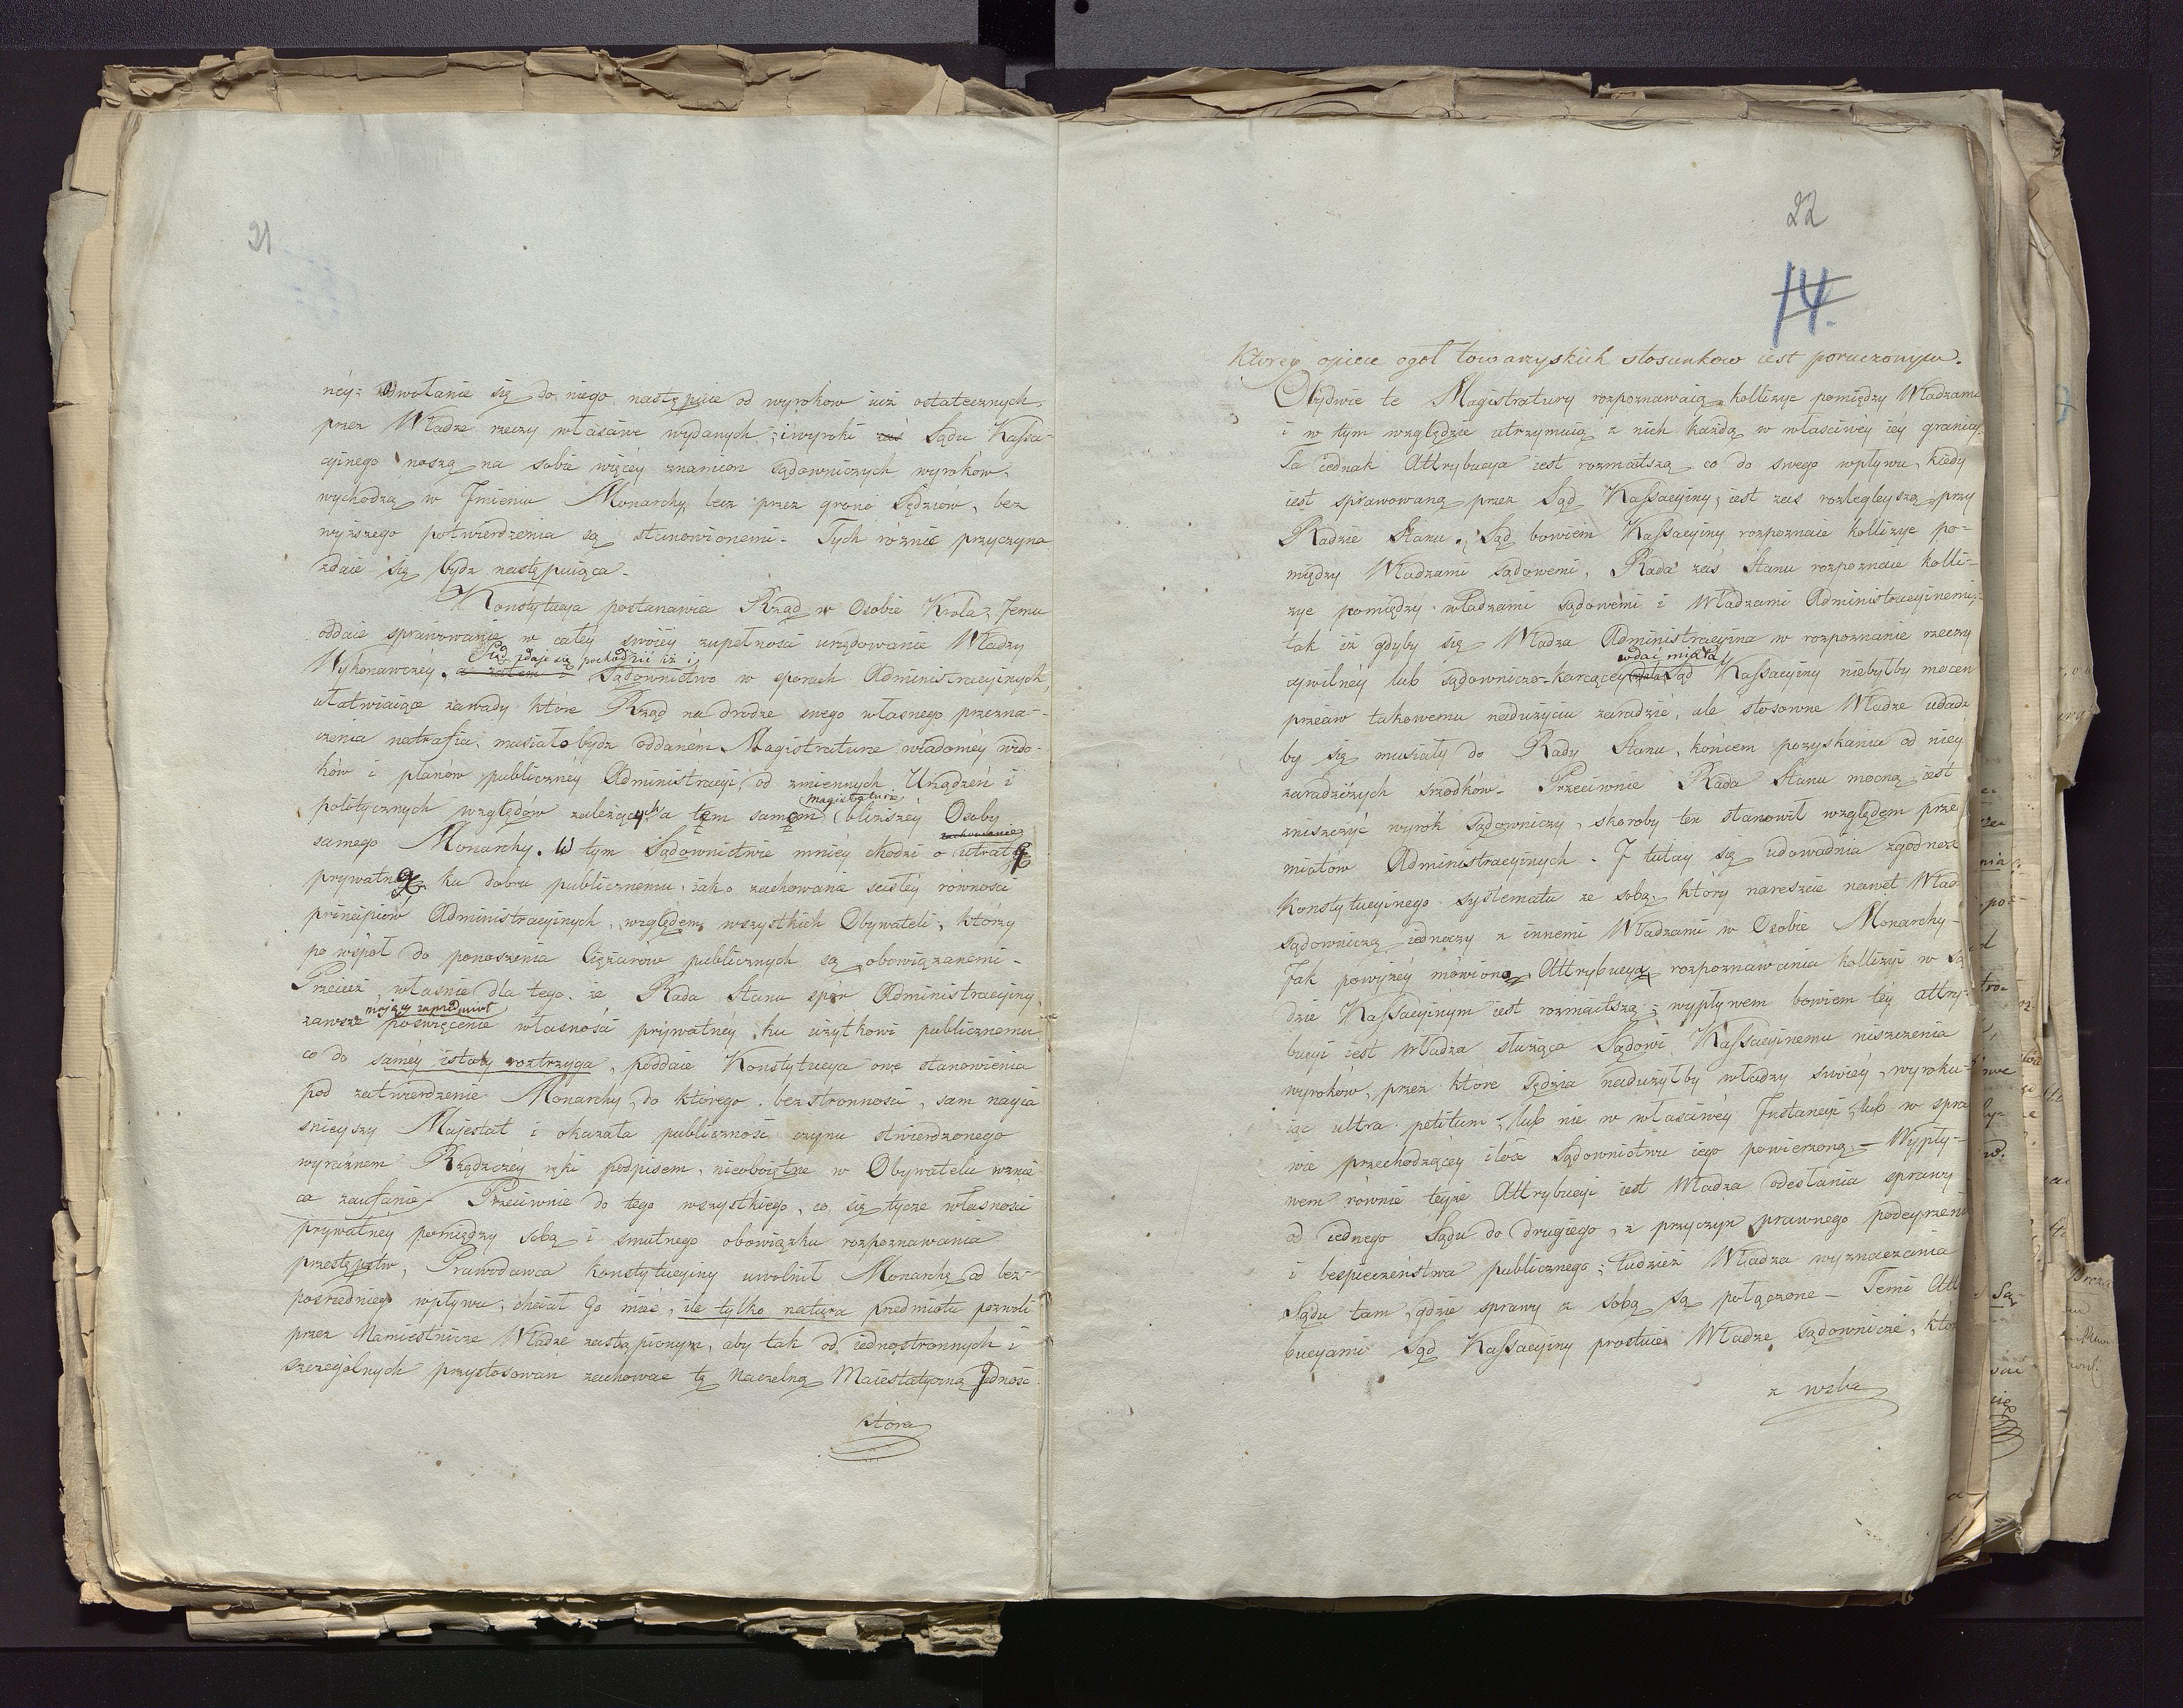 21
néy: Odwołanie się do niego następuie od wyrokow iuż ostatecznych,
przez Władze rzeczy własciwe wydanych; i wyroki zaś Sądu Kassa-
cyinego noszą na sobie więcéy znamion sądowniczych wyroków,
wychodzą w Jmieniu Monarchy, lecz przez grono Sędziów, bez
wyższego potwierdzenia są stanowionemi. Tych różnic przyczyna
zdaie się bydz następuiąca.
Konstytucya postanawia Rząd w Osobie Krola; Jemu
oddaie sprawowanie w całéy swoiéy zupełnosci urzędowanie Władzy
Ztąd zdaje się pochodzić iż i
Wykonawczéy. a zatem i Sądownictwo w sporach Administracyinych,
ułatwiaiące zawady które Rząd na drodze swego własnego przezna-
czenia natrafia, musiało bydz oddaném Magistraturze wiadoméy wido-
ków i planów publicznéy Administracyi, od zmiennych Urządzeń i
magistraturze
politycznych względów zależących a tem samem bliższéy Osoby
zachowanie
samego Monarchy. W tym Sądownictwie mniéy chodzi o utratę
prywatną ku dobru publicznemu, iak o zachowanie scisłéy równosci
principiów Administracyinych, względem wszystkich Obywateli, którzy
po wspoł do ponoszenia Ciężarów publicznych są obowiązanemi.
Przecież własnie dla tego, że Rada Stanu spór Administracyiny
mający za przedmiot
zawsze poswięcenie własnosci prywatnéy ku użytkowi publicznemu
co do saméy istoty roztrzyga, poddaie Konstytucya owe stanowienia
pod zatwierdzenie Monarchy, do którego bezstronnosci, sam nayia
snieyszy Majestat i okazała publicznosc czynu stwierdzonego
wyraznem Rządczéy ręki podpisem, nieoboiętne w Obywatelu wznie
ca zaufanie. Przeciwnie do tego wszystkiego, co się tycze własnosci
prywatnéy pomiędzy sobą i smutnego obowiązku rozpoznawania
przestępstw, Prawodawca konstytucyiny uwolnił Monarchę od bez-
posredniego wpływu, chciał Go mieć, ile tylko natura przedmiotu pozwoli
przez Namiestnicze Władze zastąpionym, aby tak od iednostronnych i
szczególnych przystosowań zachować tę Naczelną Maiestatyczną Jedność
która
22
14.
Któréy opiece ogół towarzyskich stosunkow iest poruczonym.
Obydwie te Magistratury rozpoznawaią kollizye pomiędzy Władzami
i w tym względzie utrzymuią z nich każdą w własciwéy iéy granicy.
Ta iednak Attrybucya iest rozmaitszą co do swego wpływu, kiedy
iest sprawowaną przez Sąd Kassacyiny; iest zas rozlegleyszą przy
Radzie Stanu. Sąd bowiem Kassacyiny rozpoznaie kollizye po-
między Władzami sądowemi, Rada zaś Stanu rozpoznaie kolli-
zye pomiędzy władzami sądowemi i Władzami Administracyinemi;
tak iż gdyby się Władza Administracyina w rozpoznanie rzeczy
wdać miała,
cywilnéy lub sądowniczo-karcącéy Sąd Kassacyiny niebyłby mocen
przeciw takowemu nadużyciu zaradzić, ale stosowne Władze udadz
by się musiały do Rady Stanu, końcem pozyskania od niey
zaradczych srzodków. Przeciwnie Rada Stanu mocną iest
zniszczyć wyrok sądowniczy, skoroby ten stanowił względem prze
miotów Administracyinych. J tutay się udowadnia zgodnosć
Konstytucyinego systematu ze sobą, który nareszcie nawet Wład-
sądowniczą iednoczy z innemi Władzami w Osobie Monarchy.
Jak powyżéy mówiono, Attrybucya rozpoznawania kollizyi w Są
dzie Kassacyinym iest rozmaitszą; wypływem bowiem téy attry-
bucyi iest Władza służąca Sądowi Kassacyinemu niszczenia
wyroków, przez ktore Sędzia nadużyłby władzy swoiéy, wyroku-
iąc ultra petitum, lub nie w własciwéy Jnstancyi, lub w spra
wie przechodzącéy ilosc Sądownictwu iego powierzoną. — Wypły-
wem równie teyże Attrybucyi iest Władza odesłania sprawy
od iednego Sądu do drugiego, z przyczyn prawnego podeyrzeni
i bespieczeństwa publicznego; tudzież Władza wyznaczania
Sądu tam, gdzie sprawy z sobą są połączone — Temi Att
bucyami Sąd Kassacyiny prostuie Władze sądownicze, któ
z wzba